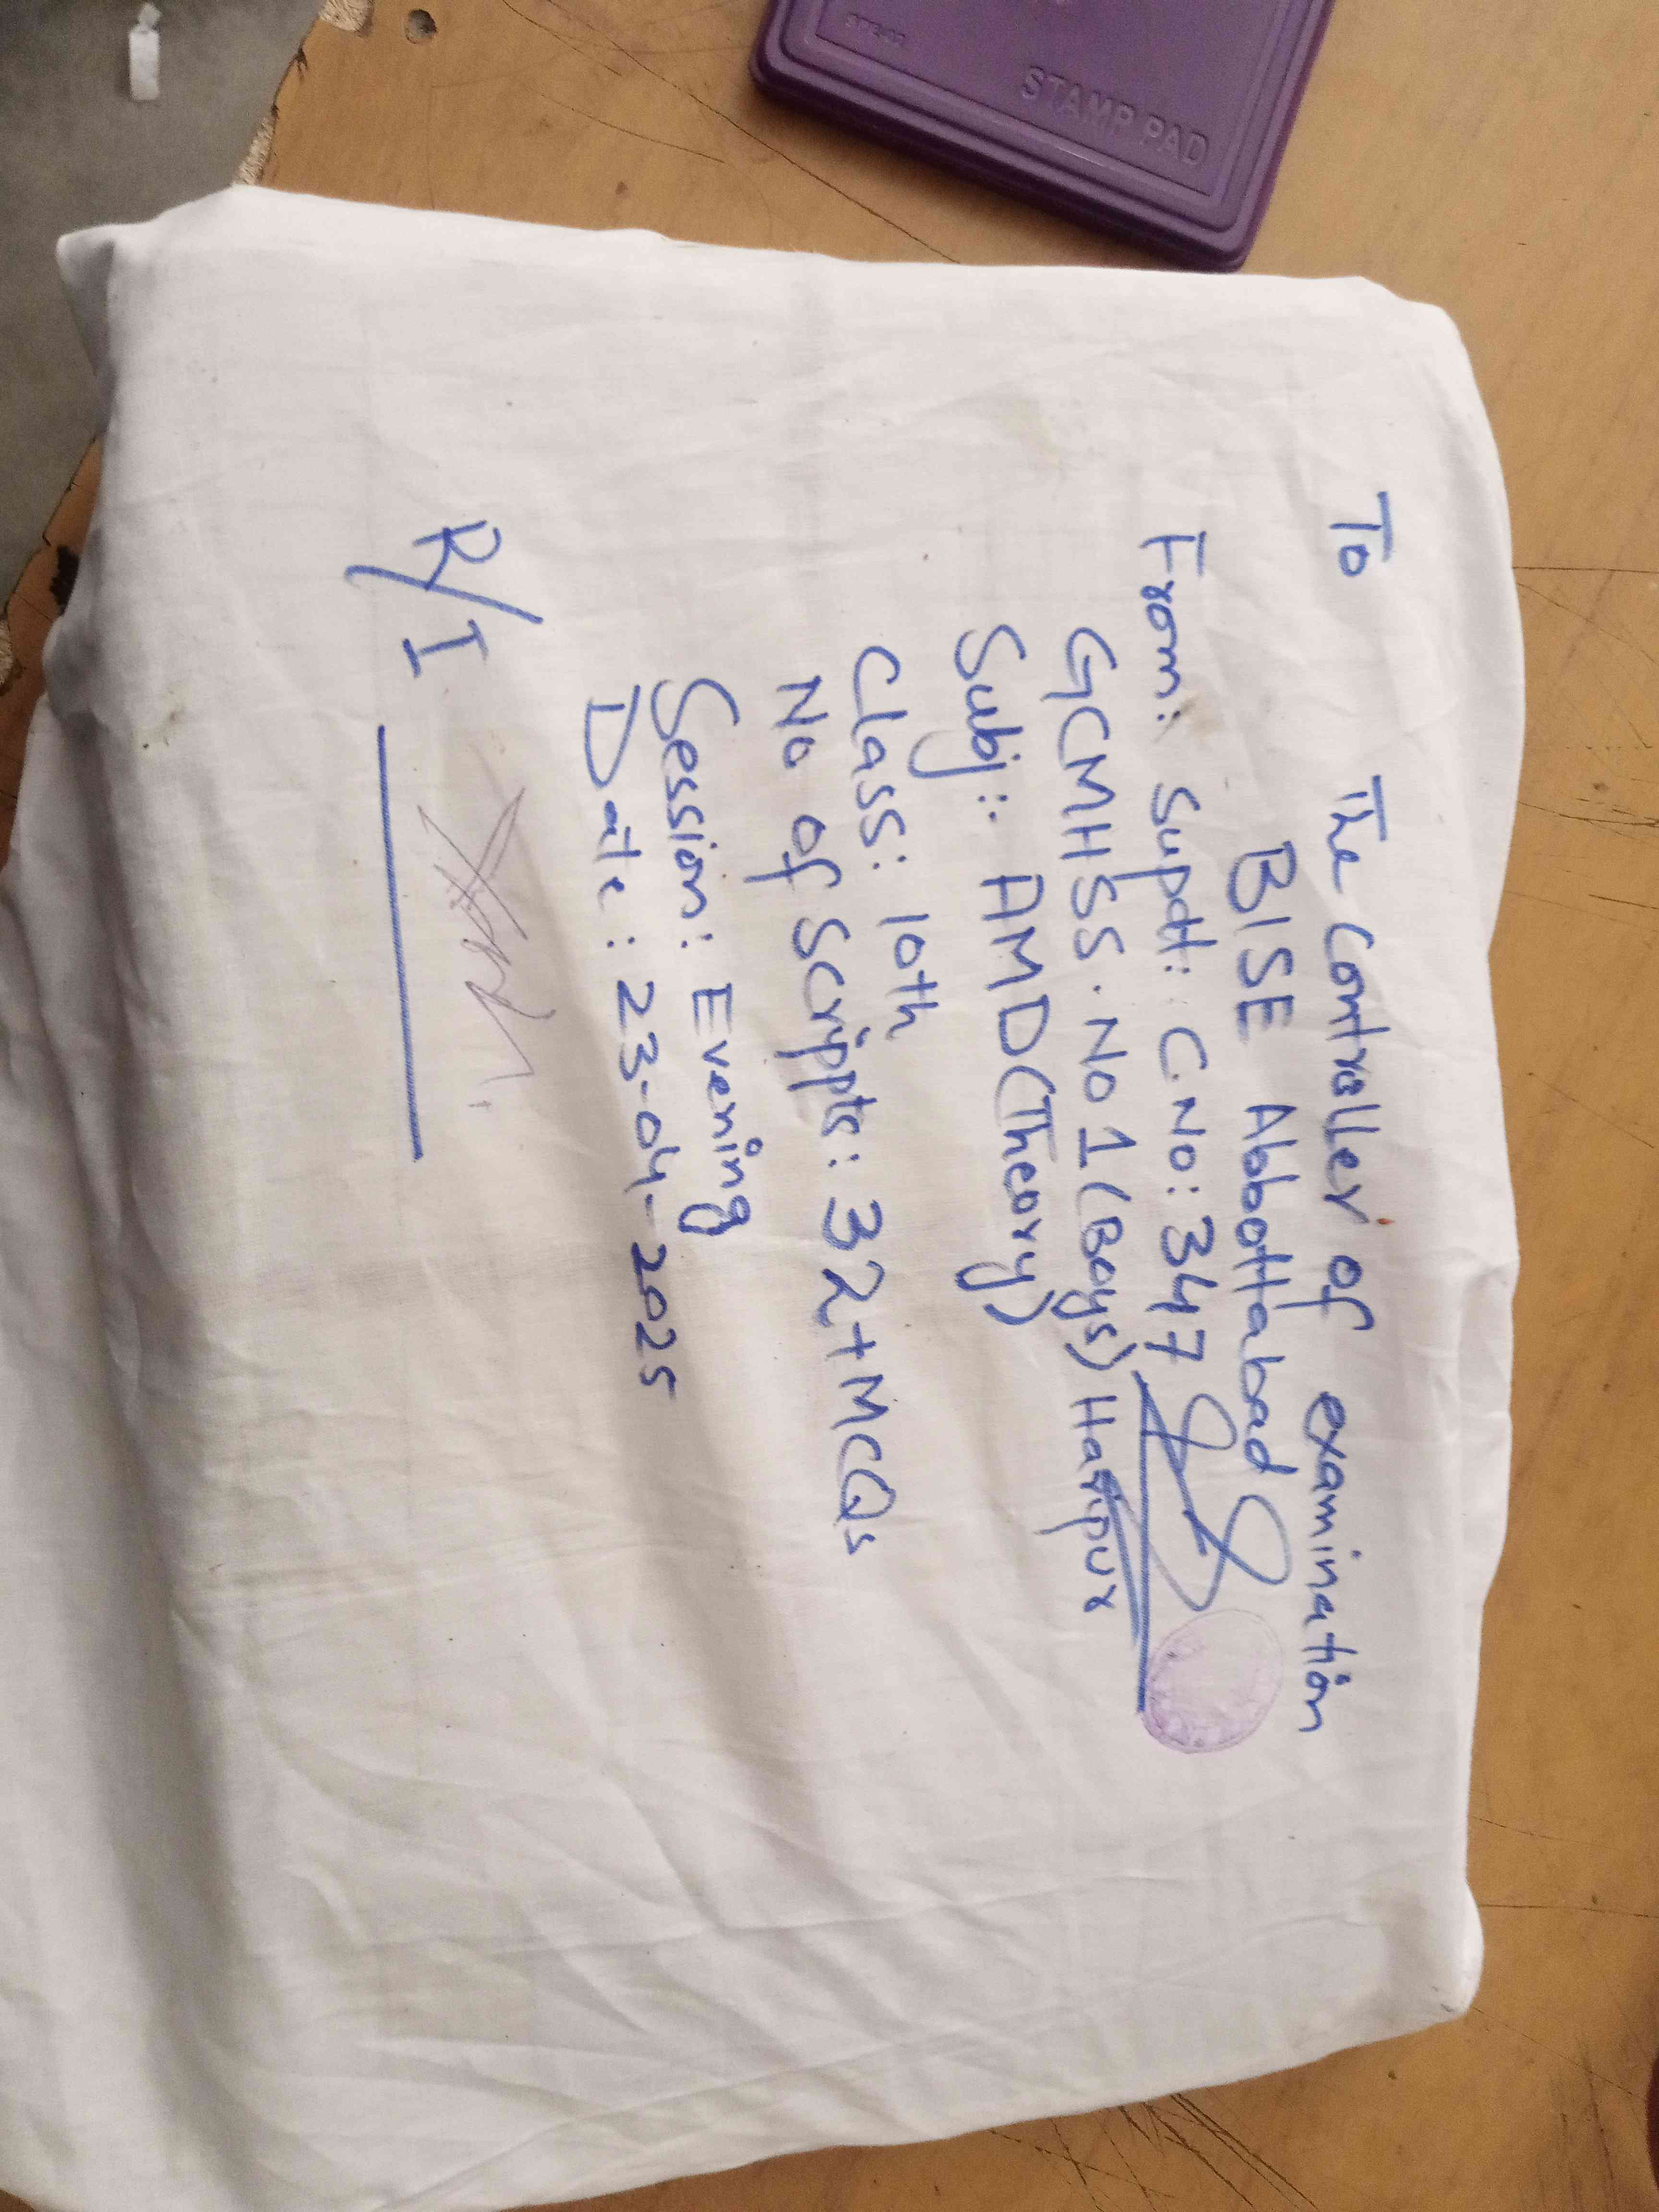 STAMP PAD
To The Controller of examination
BISE Abbottabad
From: Supdt: C.No: 347
GCMHSS. No 1 (Boys) Haripur
Subj:: AMD (Theory)
Class: 10th
No of Scrippts: 32+MCQs
Session: Evening
Date: 23-04-2025
R/I